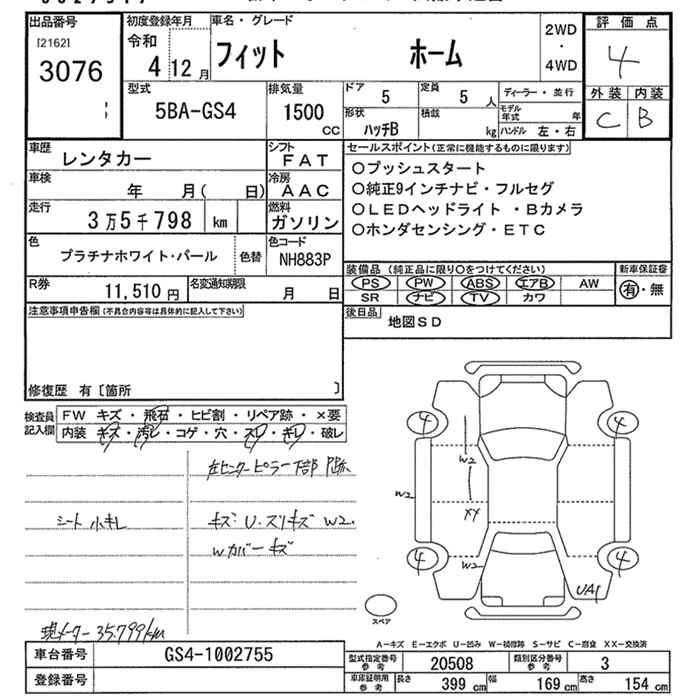 出品番号
[2162]
3076
初度登録年月
令和
4 12月
車名・グレード
フィット ホーム
2WD
・
4WD
評価点
4
外装 内装
C B
型式
5BA-GS4
排気量
1500
CC
ドア
5
定員
5 人
形状
ハッチB
積載
kg
ディーラー・並行
モデル年式 年
ハンドル 左・右
車歴
レンタカー
シフト
FAT
車検
年 月( 日)
冷房
AAC
走行
3万5千798 km
燃料
ガソリン
色
プラチナホワイト・パール
色替
色コード
NH883P
R券
11,510 円
名変通知期限
月 日
セールスポイント(正常に機能するものに限ります)
○プッシュスタート
○純正9インチナビ・フルセグ
○LEDヘッドライト ・Bカメラ
○ホンダセンシング・ETC
装備品 (純正品に限り○をつけてください)
PS PW ABS エアB AW
SR ナビ TV カワ
新車保証書
有・無
後日品
地図SD
注意事項申告欄(不具合内容等は具体的に記入して下さい)
修復歴 有〔箇所 〕
検査員
記入欄
FW キズ・飛石・ヒビ割・リペア跡・×要
内装 キズ・汚レ・コゲ・穴・スレ・キレ・破レ
左センターピラー下部
シート小キレ
キズ・U・スリキズ W2
Wカバーキズ
現メーター 35,799km
4
4
W2
W2
XX
W2
4
4
UA1
スペア
A−キズ E−エクボ U−凹み W−補修跡 S−サビ C−腐食 XX−交換済
車台番号
GS4-1002755
登録番号
型式指定番号
参考
20508
類別区分番号
参考
3
車庫証明用
参考
長さ 399 cm
幅 169 cm
高さ 154 cm